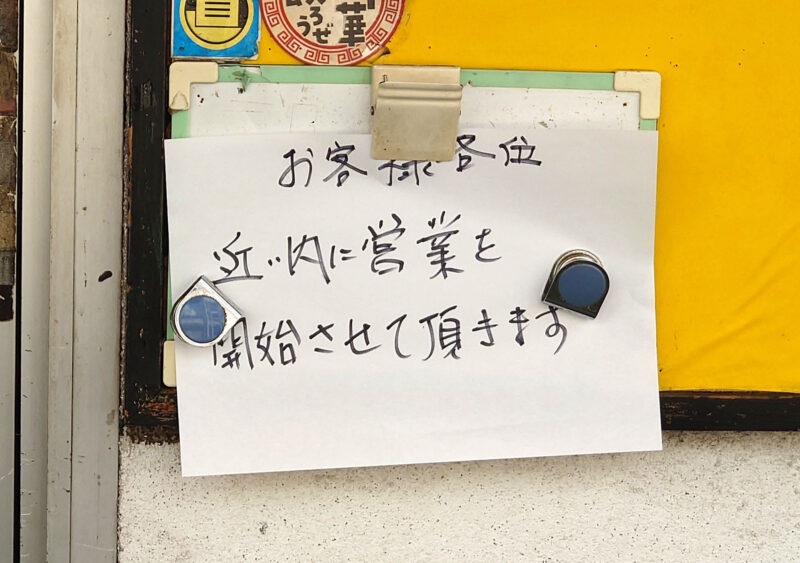 華
ぜ
う
ろ
お客様各位
近い内に営業を
開始させて頂きます